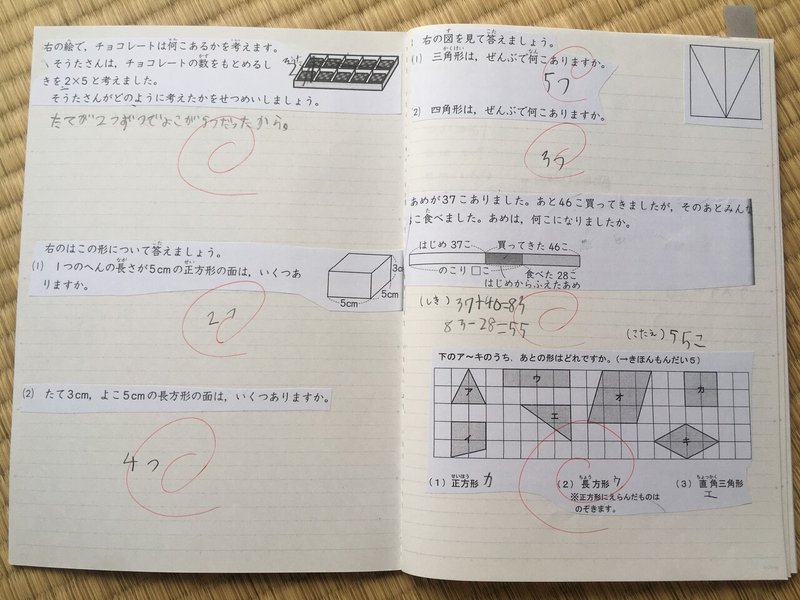 右の絵で，チョコレートは何こあるかを考えます。
そうたさんは，チョコレートの数をもとめるし
きを2×5と考えました。
そうたさんがどのように考えたかをせつめいしましょう。
たてが2つずつでよこが5つだったから。
右のはこの形について答えましょう。
(1) 1つのへんの長さが5cmの正方形の面は，いくつあ
りますか。
3c
5cm
5cm
2つ
(2) たて3cm，よこ5cmの長方形の面は，いくつありますか。
4つ
右の図を見て答えましょう。
(1) 三角形は，ぜんぶで何こありますか。
5つ
2) 四角形は，ぜんぶで何こありますか。
3つ
あめが37こありました。あと46こ買ってきましたが，そのあとみんな
こ食べました。あめは，何こになりましたか。
はじめ 37こ
買ってきた 46こ
のこり □こ
食べた 28こ
はじめからふえたあめ
(しき) 37+46=83
83-28=55
(こたえ) 55こ
下のア〜キのうち、あとの形はどれですか。(→きほんもんだい5)
ア
ウ
エ
オ
カ
イ
キ
(1) 正方形 カ
(2) 長方形 ウ
(3) 直角三角形
エ
※正方形にえらんだものは
のぞきます。